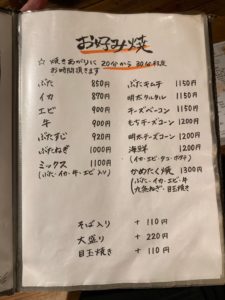 お好み焼
☆ 焼きあがりに 20分から 30分程度
お時間頂きます
ぶた 850円
イカ 870円
エビ 900円
牛 900円
ぶたすじ 920円
ぶたねぎ 1000円
ミックス 1100円
(ぶた・イカ・牛・エビ入り)
ぶたキムチ 1150円
明太タルタル 1150円
チーズベーコン 1150円
もちチーズコーン 1200円
明太チーズコーン 1200円
海鮮 1200円
(イカ・エビ・タコ・ホタテ)
かめたく焼 1300円
(ぶた・イカ・エビ・牛
九条ねぎ・目玉焼き)
そば入り + 110円
大盛り + 220円
目玉焼き + 110円